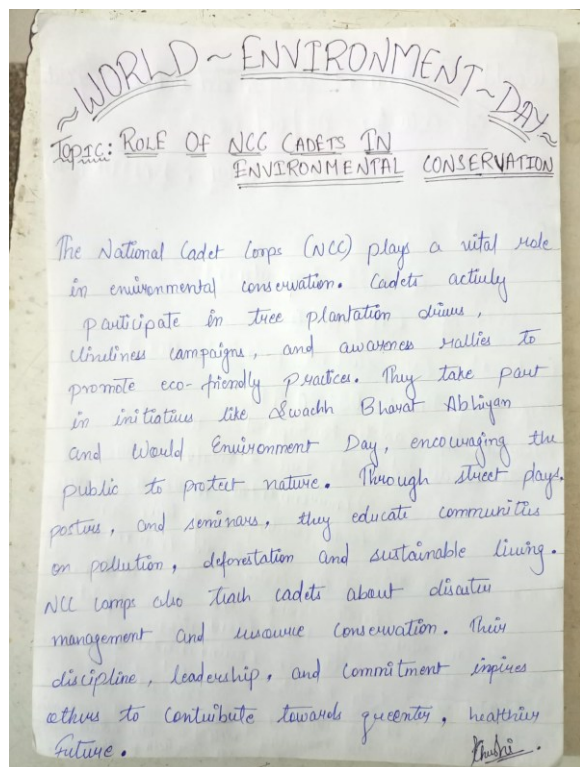 ~WORLD~ENVIRONMENT~DAY~
TOPIC: ROLE OF NCC CADETS IN
ENVIRONMENTAL CONSERVATION
The National Cadet Corps (NCC) plays a vital role
in environmental conservation. Cadets actively
participate in tree plantation drives,
clineliness campaigns, and awareness rallies to
promote eco-friendly practices. They take part
in initiatives like Swachh Bharat Abhiyan
and World Environment Day, encouraging the
public to protect nature. Through street plays,
posters, and seminars, they educate communities
on pollution, deforestation and sustainable living.
NCC camps also teach cadets about disaster
management and resource conservation. Their
discipline, leadership, and commitment inpires
others to contribute towards greenter, healthier
future.
Khushi.